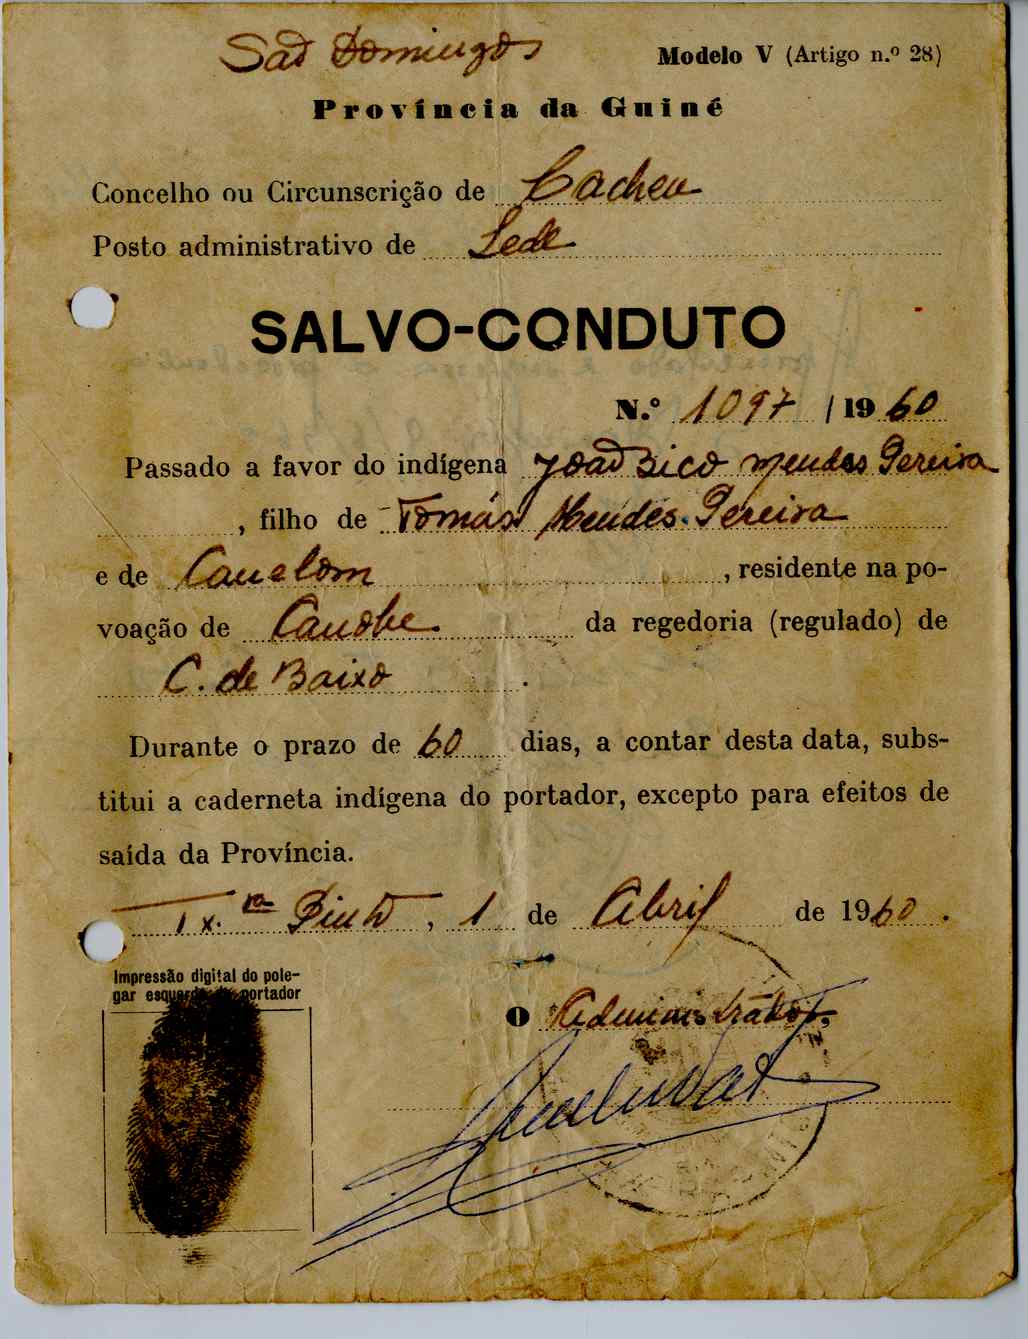 São Domingos
Modelo V (Artigo n.º 28)
Província da Guiné
Concelho ou Circunscrição de Cacheu
Posto administrativo de Sede
SALVO-CONDUTO
N.º 1097 / 1960
Passado a favor do indígena João Bico Mendes Pereira
, filho de Tomás Mendes Pereira
e de Canelom , residente na po-
voação de Canobe da regedoria (regulado) de
C. de Baixo .
Durante o prazo de 60 dias, a contar desta data, subs-
titui a caderneta indígena do portador, excepto para efeitos de
saída da Província.
Tx.ra Pinto, 1 de Abril de 1960.
Impressão digital do pole-
gar esquerdo do portador
O Administrador,